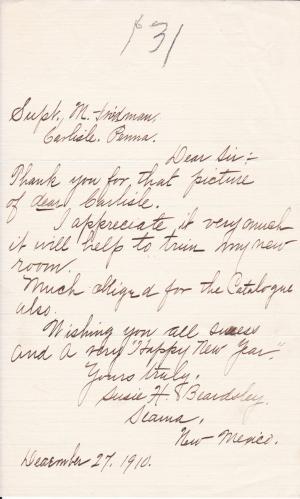 #31
Supt. M. Friedman.
Carlisle. Penna.
Dear Sir:-
Thank you for that picture
of dear Carlisle.
I appreciate it very much
it will help to trim my new
room.
Much obliged for the Catalogue
also.
Wishing you all success
and a very "Happy New Year".
Yours truly,
Susie H. Beardsley.
Seama,
New Mexico.
December 27. 1910.